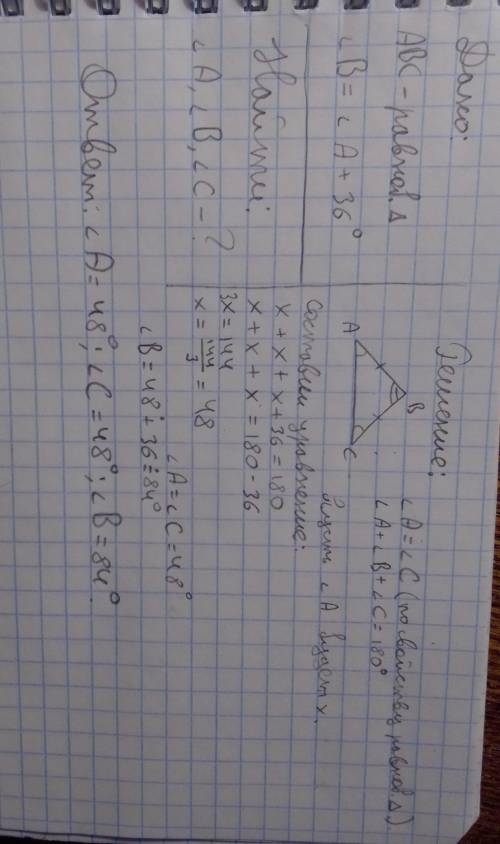 Дано:
ABC - равноб. Δ
∠B = ∠A + 36°
Найти:
∠A, ∠B, ∠C - ?
Решение:
∠A = ∠C (по свойству равноб. Δ)
∠A + ∠B + ∠C = 180°
A
B
C
Пусть ∠A будет x.
Составим уравнение:
x + x + x + 36 = 180
x + x + x = 180 - 36
3x = 144
x = 144/3 = 48
∠A = ∠C = 48°
∠B = 48° + 36° = 84°
Ответ: ∠A = 48°; ∠C = 48°; ∠B = 84°.